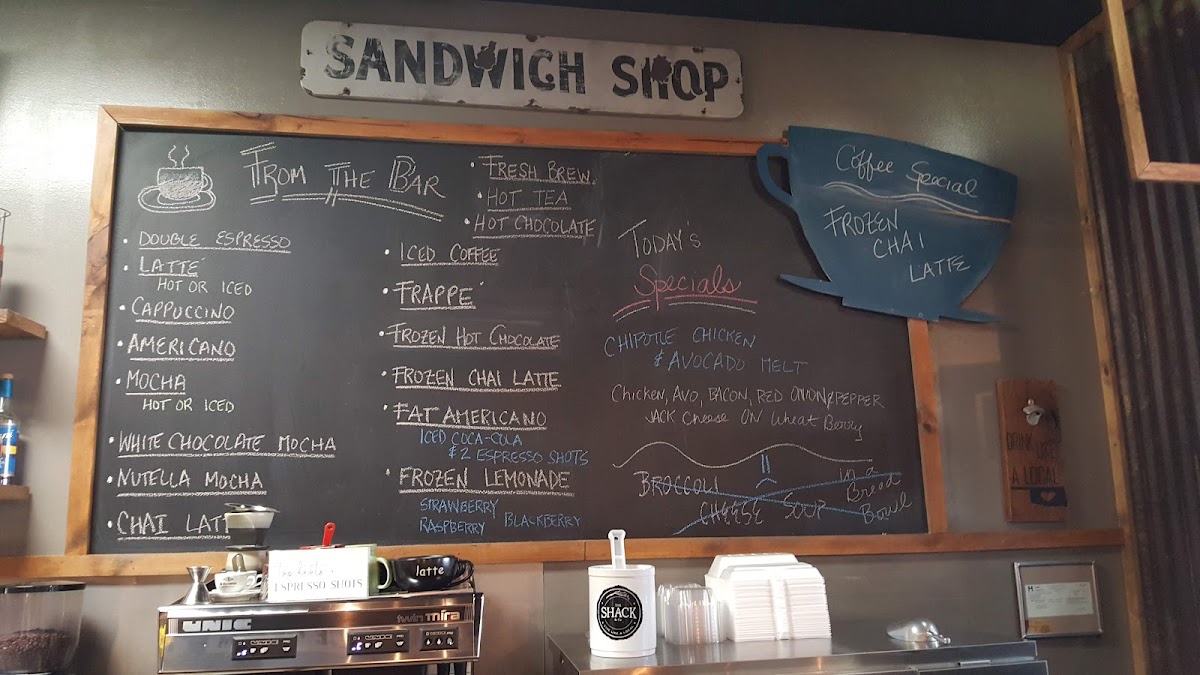 SANDWICH SHOP
FROM THE BAR
• DOUBLE ESPRESSO
• LATTÉ
HOT OR ICED
• CAPPUCCINO
• AMERICANO
• MOCHA
HOT OR ICED
• WHITE CHOCOLATE MOCHA
• NUTELLA MOCHA
• CHAI LATT
• FRESH BREW.
• HOT TEA
• HOT CHOCOLATE
• ICED COFFEE
• FRAPPÉ
• FROZEN HOT CHOCOLATE
• FROZEN CHAI LATTE
• FAT AMERICANO
ICED COCA-COLA
& 2 ESPRESSO SHOTS
• FROZEN LEMONADE
STRAWBERRY
RASPBERRY BLACKBERRY
TODAY'S
Specials
CHIPOTLE CHICKEN
& AVOCADO MELT
Chicken, AVO, BACON, RED ONION & PEPPER
JACK Cheese ON Wheat Berry
BROCCOLI
CHEESE SOUP
in a
Bread
Bowl
Coffee Special
FROZEN
CHAI
LATTE
DRINK
A LOCAL
ESPRESSO SHOTS
latte
UNIC
twin mira
THE
SHACK
& Co